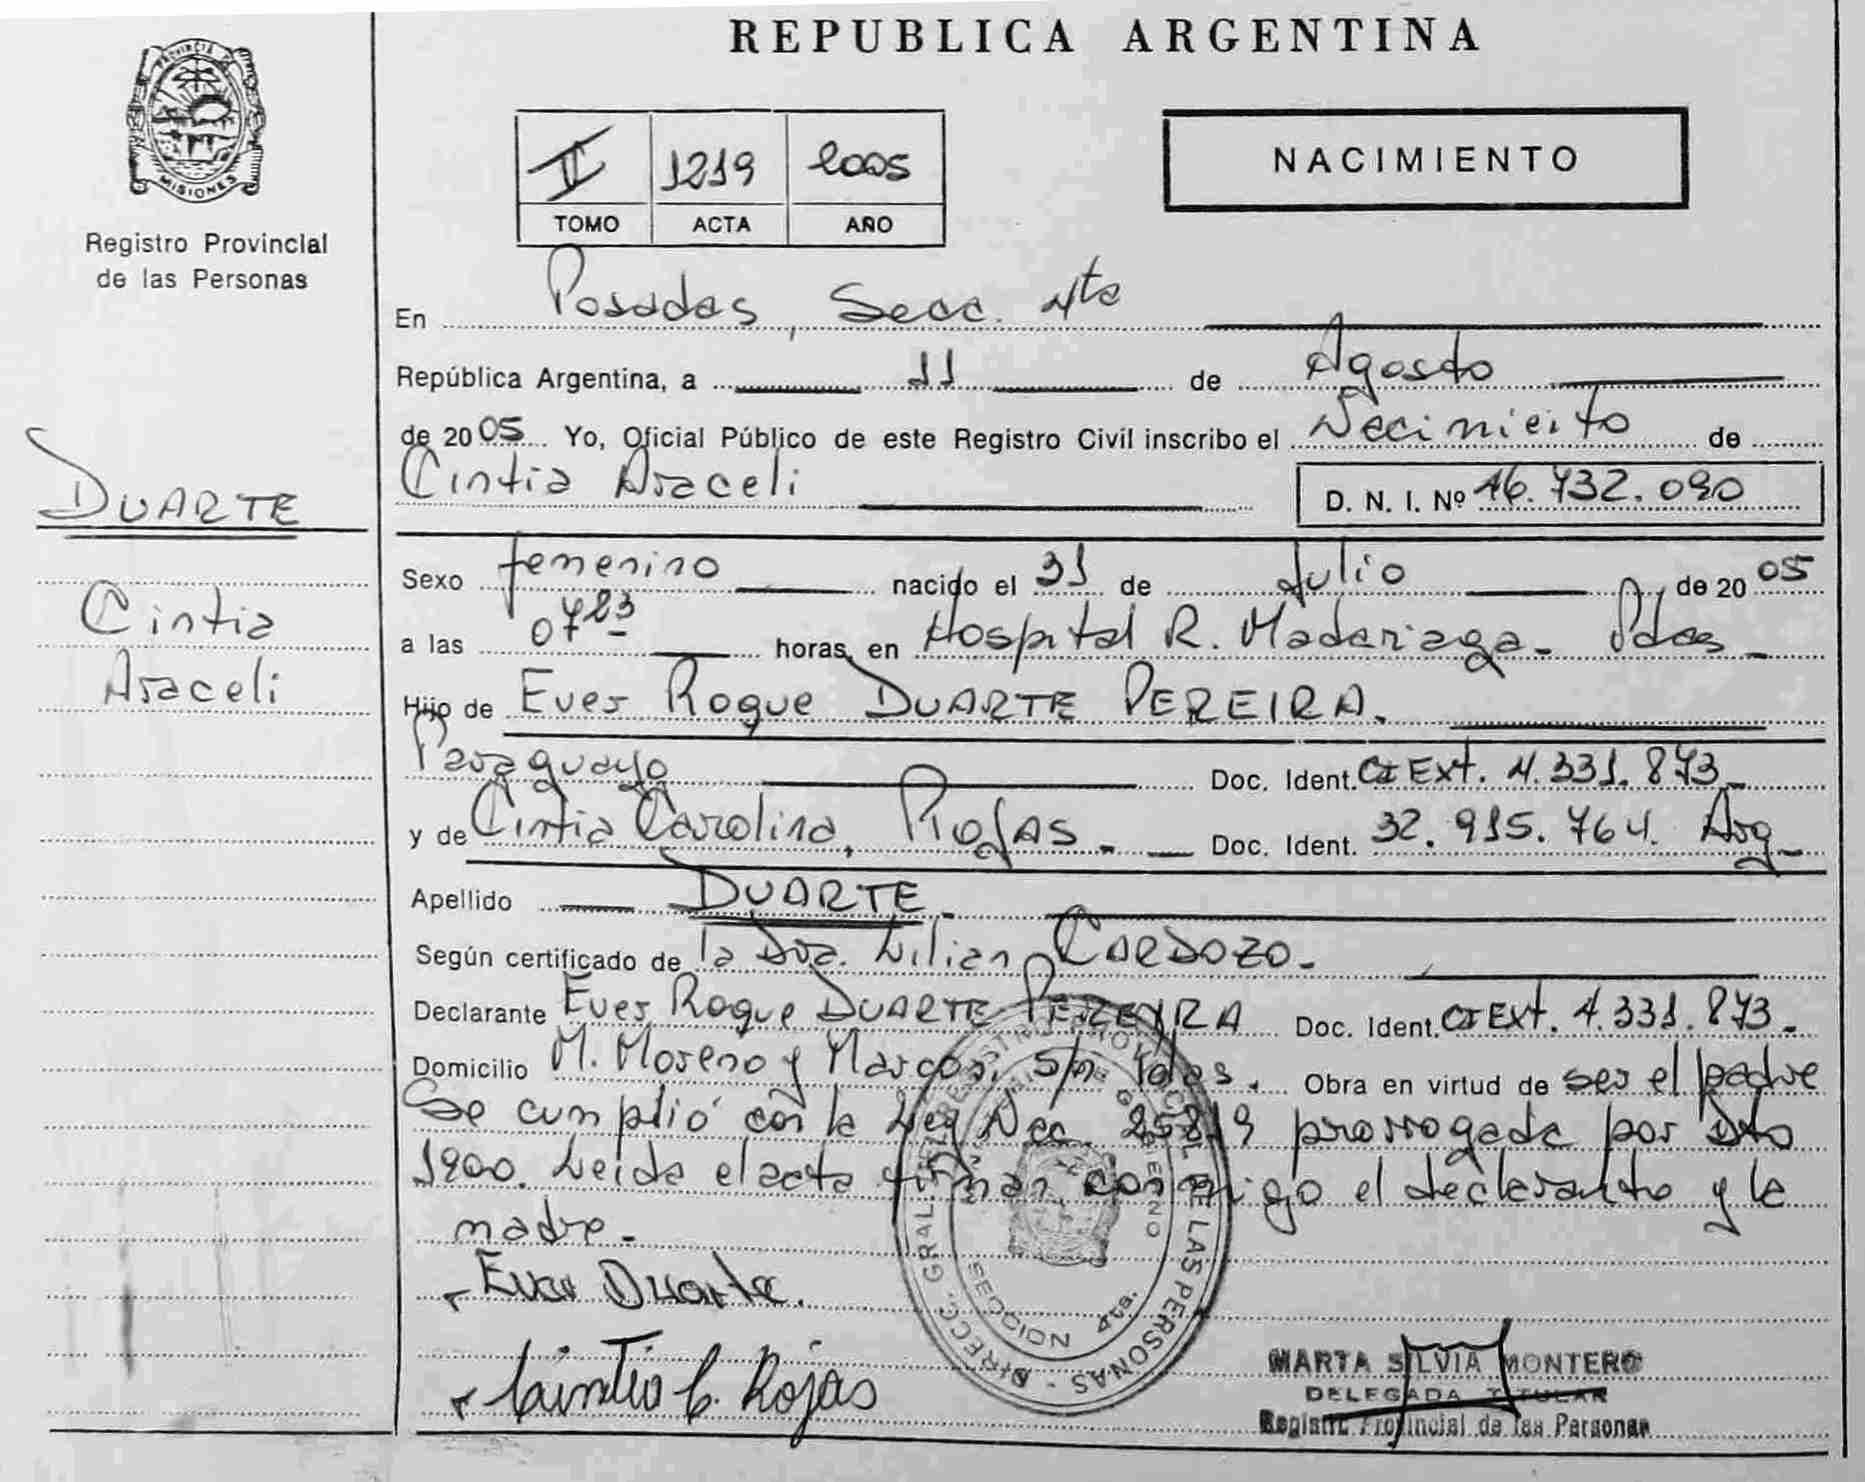 REPUBLICA ARGENTINA
PROVINCIA DE
MISIONES
Registro Provincial
de las Personas
II 1219 2005
TOMO ACTA AÑO
NACIMIENTO
En Posadas, Secc. 4ta
República Argentina, a 11 de Agosto
de 2005 Yo, Oficial Público de este Registro Civil inscribo el Nacimiento de
Cintia Araceli D. N. I. Nº 46.732.090
DUARTE
Cintia
Araceli
Sexo femenino nacido el 31 de Julio de 2005
a las 0723 horas en Hospital R. Madariaga - Pdas -
Hijo de Ever Roque DUARTE PEREIRA.
Paraguayo Doc. Ident. CI Ext. 4.331.873 -
y de Cintia Carolina, ROJAS. - Doc. Ident. 32.915.764. Arg -
Apellido DUARTE.
Según certificado de la Dra. Lilian CARDOZO -
Declarante Ever Roque DUARTE PEREYRA Doc. Ident. CI Ext. 4.331.873 -
Domicilio M. Moreno y Marcos, s/n Pdas. Obra en virtud de ser el padre
Se cumplió con la Ley Nac. 25819 prorrogada por Dto
1900. Leida el acta firman conmigo el declarante y la
madre -
Ever Duarte.
Cintia C. Rojas
DIRECC. GRAL. DEL REGISTRO PROVINCIAL DE LAS PERSONAS -
SECCION 4ta.
MARTA SILVIA MONTERO
DELEGADA TITULAR
Registro Provincial de las Personas